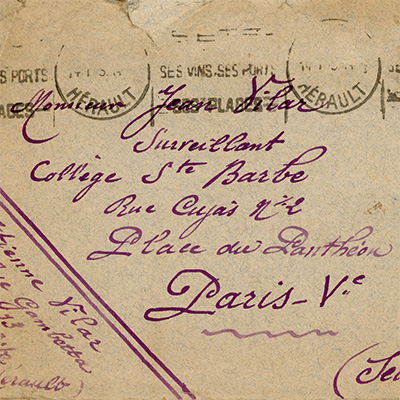 SES PORTS
HÉRAULT
SES VINS, SES PORTS
SES PLAGES
HÉRAULT
PLAGES
Monsieur Jean Vilar
Surveillant
Collège Ste Barbe
Rue Cujas N° 2
Place du Panthéon
Paris - Ve
(Sei
Vilar
Gambetta
Hérault)